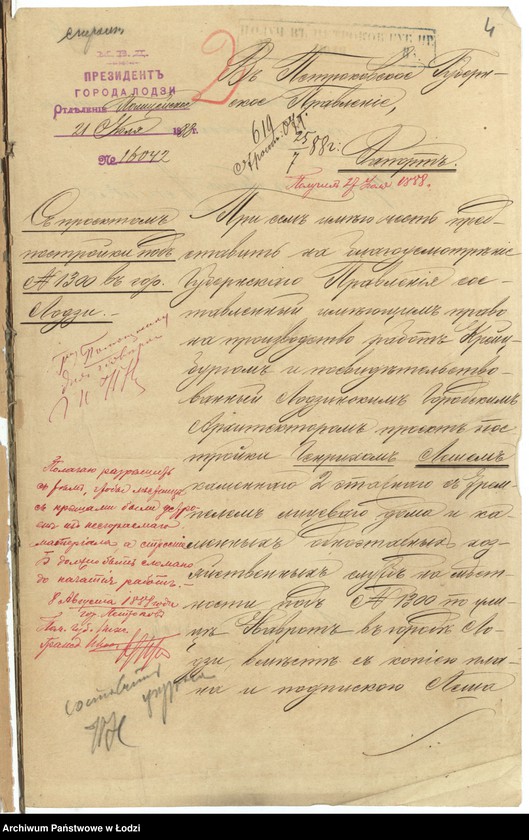 4
М. В. Д.
ПРЕЗИДЕНТЪ
ГОРОДА ЛОДЗИ
Отдѣленіе Полицейское
21 Іюля 1888 г.
№ 16042
2
Въ Петроковское Губерн-
ское Правленіе,
619
25/7 88 г.
Рапортъ.
Получен 27 Іюля 1888.
Съ проектомъ
постройки подъ
№ 1300 въ гор.
Лодзи.
При семъ имѣю честь пред-
ставить на благоусмотрѣніе
Губернскаго Правленія сос-
тавленный имѣющимъ право
на производство работъ Крем-
бургомъ и посвидѣтельство-
ванный Лодзинскимъ Городскимъ
Архитекторомъ проектъ пос-
тройки Генрихомъ Лешемъ
каменнаго 2 этажнаго съ фрон-
тономъ лицеваго дома и ка-
менныхъ одноэтажныхъ хоз-
яйственныхъ службъ на мѣст-
ности подъ № 1300 по ули-
цѣ Навротъ въ городѣ Ло-
дзи, вмѣстѣ съ копіею пла-
на и подпискою Леша
Полагаю разрѣшить
чтобы лѣстница
съ крышами были
изъ несгораемаго
матеріала и строеніе
Б должно быть сломано
до начатія работъ.
8 Августа 1888 года
гор. Петроковъ
составить
Archiwum Państwowe w Łodzi